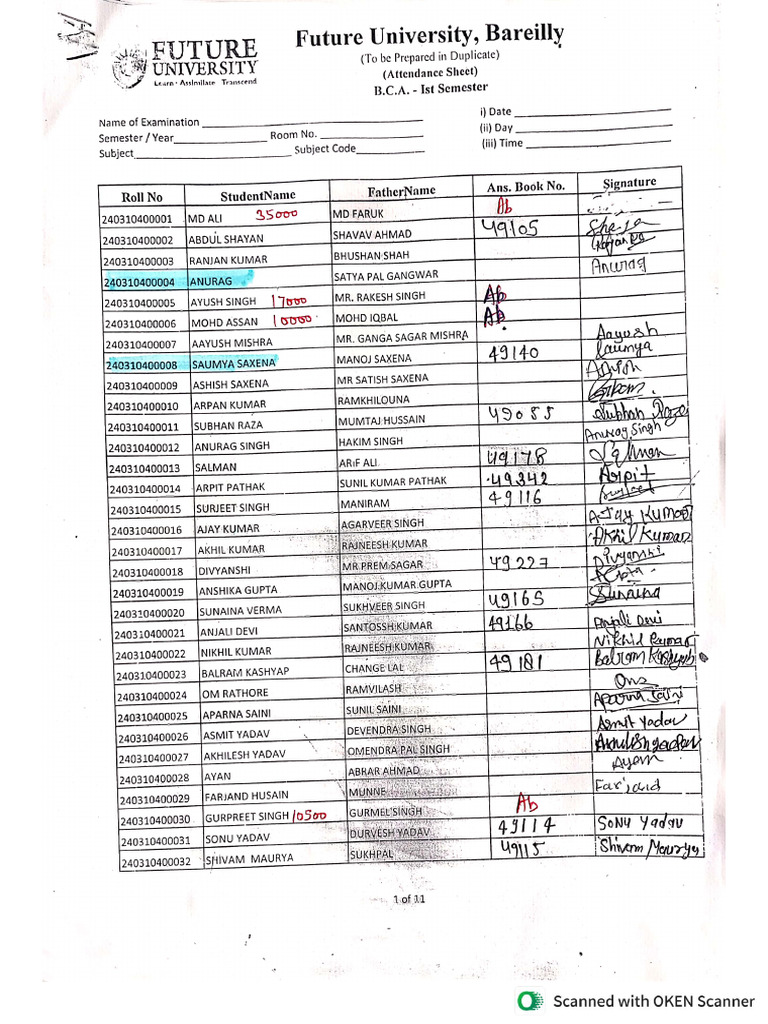 FUTURE
UNIVERSITY
Learn · Assimilate · Transcend
Future University, Bareilly
(To be Prepared in Duplicate)
(Attendance Sheet)
B.C.A. - Ist Semester
Name of Examination
Semester / Year Room No.
Subject Subject Code
i) Date
(ii) Day
(iii) Time
Roll No StudentName FatherName Ans. Book No. Signature
240310400001 MD ALI 35000 MD FARUK Ab
240310400002 ABDUL SHAYAN SHAVAV AHMAD 49105
240310400003 RANJAN KUMAR BHUSHAN SHAH
240310400004 ANURAG SATYA PAL GANGWAR Anurag
240310400005 AYUSH SINGH 17000 MR. RAKESH SINGH Ab
240310400006 MOHD ASSAN 10000 MOHD IQBAL Ab
240310400007 AAYUSH MISHRA MR. GANGA SAGAR MISHRA Aayush
240310400008 SAUMYA SAXENA MANOJ SAXENA 49140 Saumya
240310400009 ASHISH SAXENA MR SATISH SAXENA
240310400010 ARPAN KUMAR RAMKHILOUNA
240310400011 SUBHAN RAZA MUMTAJ HUSSAIN 49085 Subhan Raza
240310400012 ANURAG SINGH HAKIM SINGH Anurag Singh
240310400013 SALMAN ARIF ALI 49178 Salman
240310400014 ARPIT PATHAK SUNIL KUMAR PATHAK 49342 Arpit
240310400015 SURJEET SINGH MANIRAM 49116 Surjeet
240310400016 AJAY KUMAR AGARVEER SINGH AJay KUMAR
240310400017 AKHIL KUMAR RAJNEESH KUMAR Akhil Kumar
240310400018 DIVYANSHI MR PREM SAGAR 49227 Divyanshi
240310400019 ANSHIKA GUPTA MANOJ KUMAR GUPTA
240310400020 SUNAINA VERMA SUKHVEER SINGH 49165 Sunaina
240310400021 ANJALI DEVI SANTOSSH KUMAR 49166 Anjali Devi
240310400022 NIKHIL KUMAR RAJNEESH KUMAR Nikhil Kumar
240310400023 BALRAM KASHYAP CHANGE LAL 49181 Balram Kashyap
240310400024 OM RATHORE RAMVILASH
240310400025 APARNA SAINI SUNIL SAINI Aparna Saini
240310400026 ASMIT YADAV DEVENDRA SINGH Asmit Yadav
240310400027 AKHILESH YADAV OMENDRA PAL SINGH Akhilesh yadav
240310400028 AYAN ABRAR AHMAD Ayan
240310400029 FARJAND HUSAIN MUNNE Farjand
240310400030 GURPREET SINGH 10500 GURMEL SINGH Ab
240310400031 SONU YADAV DURVESH YADAV 49114 SONU YADAV
240310400032 SHIVAM MAURYA SUKHPAL 49115 Shivam Maurya
1 of 11
Scanned with OKEN Scanner